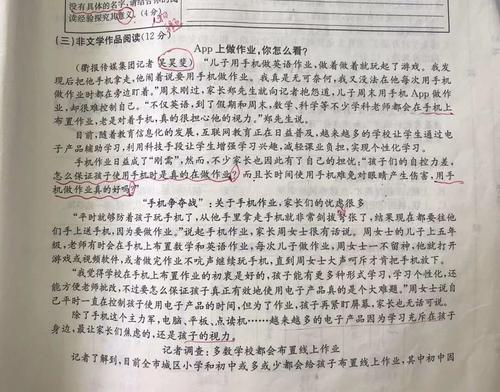 没有具体的名字,请结合你的阅
读经验探究其意义。(4分)
(三)非文学作品阅读(12分)
App上做作业,你怎么看?
(衢报传媒集团记者 吴昊斐) “儿子用手机做英语作业,做着做着就玩起了游戏。我发
现后把他手机拿走,他闹着说要用手机做作业。我真是无可奈何,我又没法在他每次用手机
做作业时都在旁边盯着。”周末刚过,家长郑先生就向记者抱怨道,儿子周末用手机App做作
业,却很难控制自己。“不仅英语,到了假期和周末,数学、科学等不少学科老师都会在手机上
布置作业,老是对着手机,真的很担心他的视力。”郑先生说。
目前,随着教育信息化的发展,互联网教育正在日益普及,越来越多的学校让学生通过电
子产品辅助学习,利用科技手段让学生增强学习兴趣,减轻课业负担,实现个性化学习。
手机作业日益成了“刚需”,然而,不少家长也因此有了自己的担忧:“孩子们的自控力差,
怎么保证孩子使用手机时是真的在做作业?而且长时间使用手机难免对眼睛产生伤害,用手
机做作业真的好吗?”
“手机争夺战”:关于手机作业,家长们的忧虑很多
“平时就够防着孩子玩手机了,从他手里拿走手机就非常剑拔弩张了,结果现在都要往他
们手上送手机,因为要做作业。”说起手机作业,家长周女士很有话说。周女士的儿子上五年
级,老师有时会在手机上布置数学和英语作业,每次儿子做作业,周女士一不留神,他就打开
游戏或视频软件,或者做完作业不吭声继续玩手机,直到周女士大声呵斥才肯把手机放下。
“我觉得学校在手机上布置作业的初衷是好的,孩子能有更多种形式学习,学习个性化,还
能方便老师批改,不过要怎么保证孩子真正有效地使用电子产品真的是个大难题。”周女士说自
己平时一直在控制孩子使用电子产品的时间,但为了作业,孩子再紧盯屏幕,家长也无话可说。
除了手机这个主力军,电脑、平板、点读机……越来越多的电子产品因为学习充斥在孩子
身边,最让家长们焦虑的,还是孩子的视力。
记者调查:多数学校都会布置线上作业
记者了解到,目前全市城区小学和初中或多或少都会给孩子布置线上作业,其中初中因